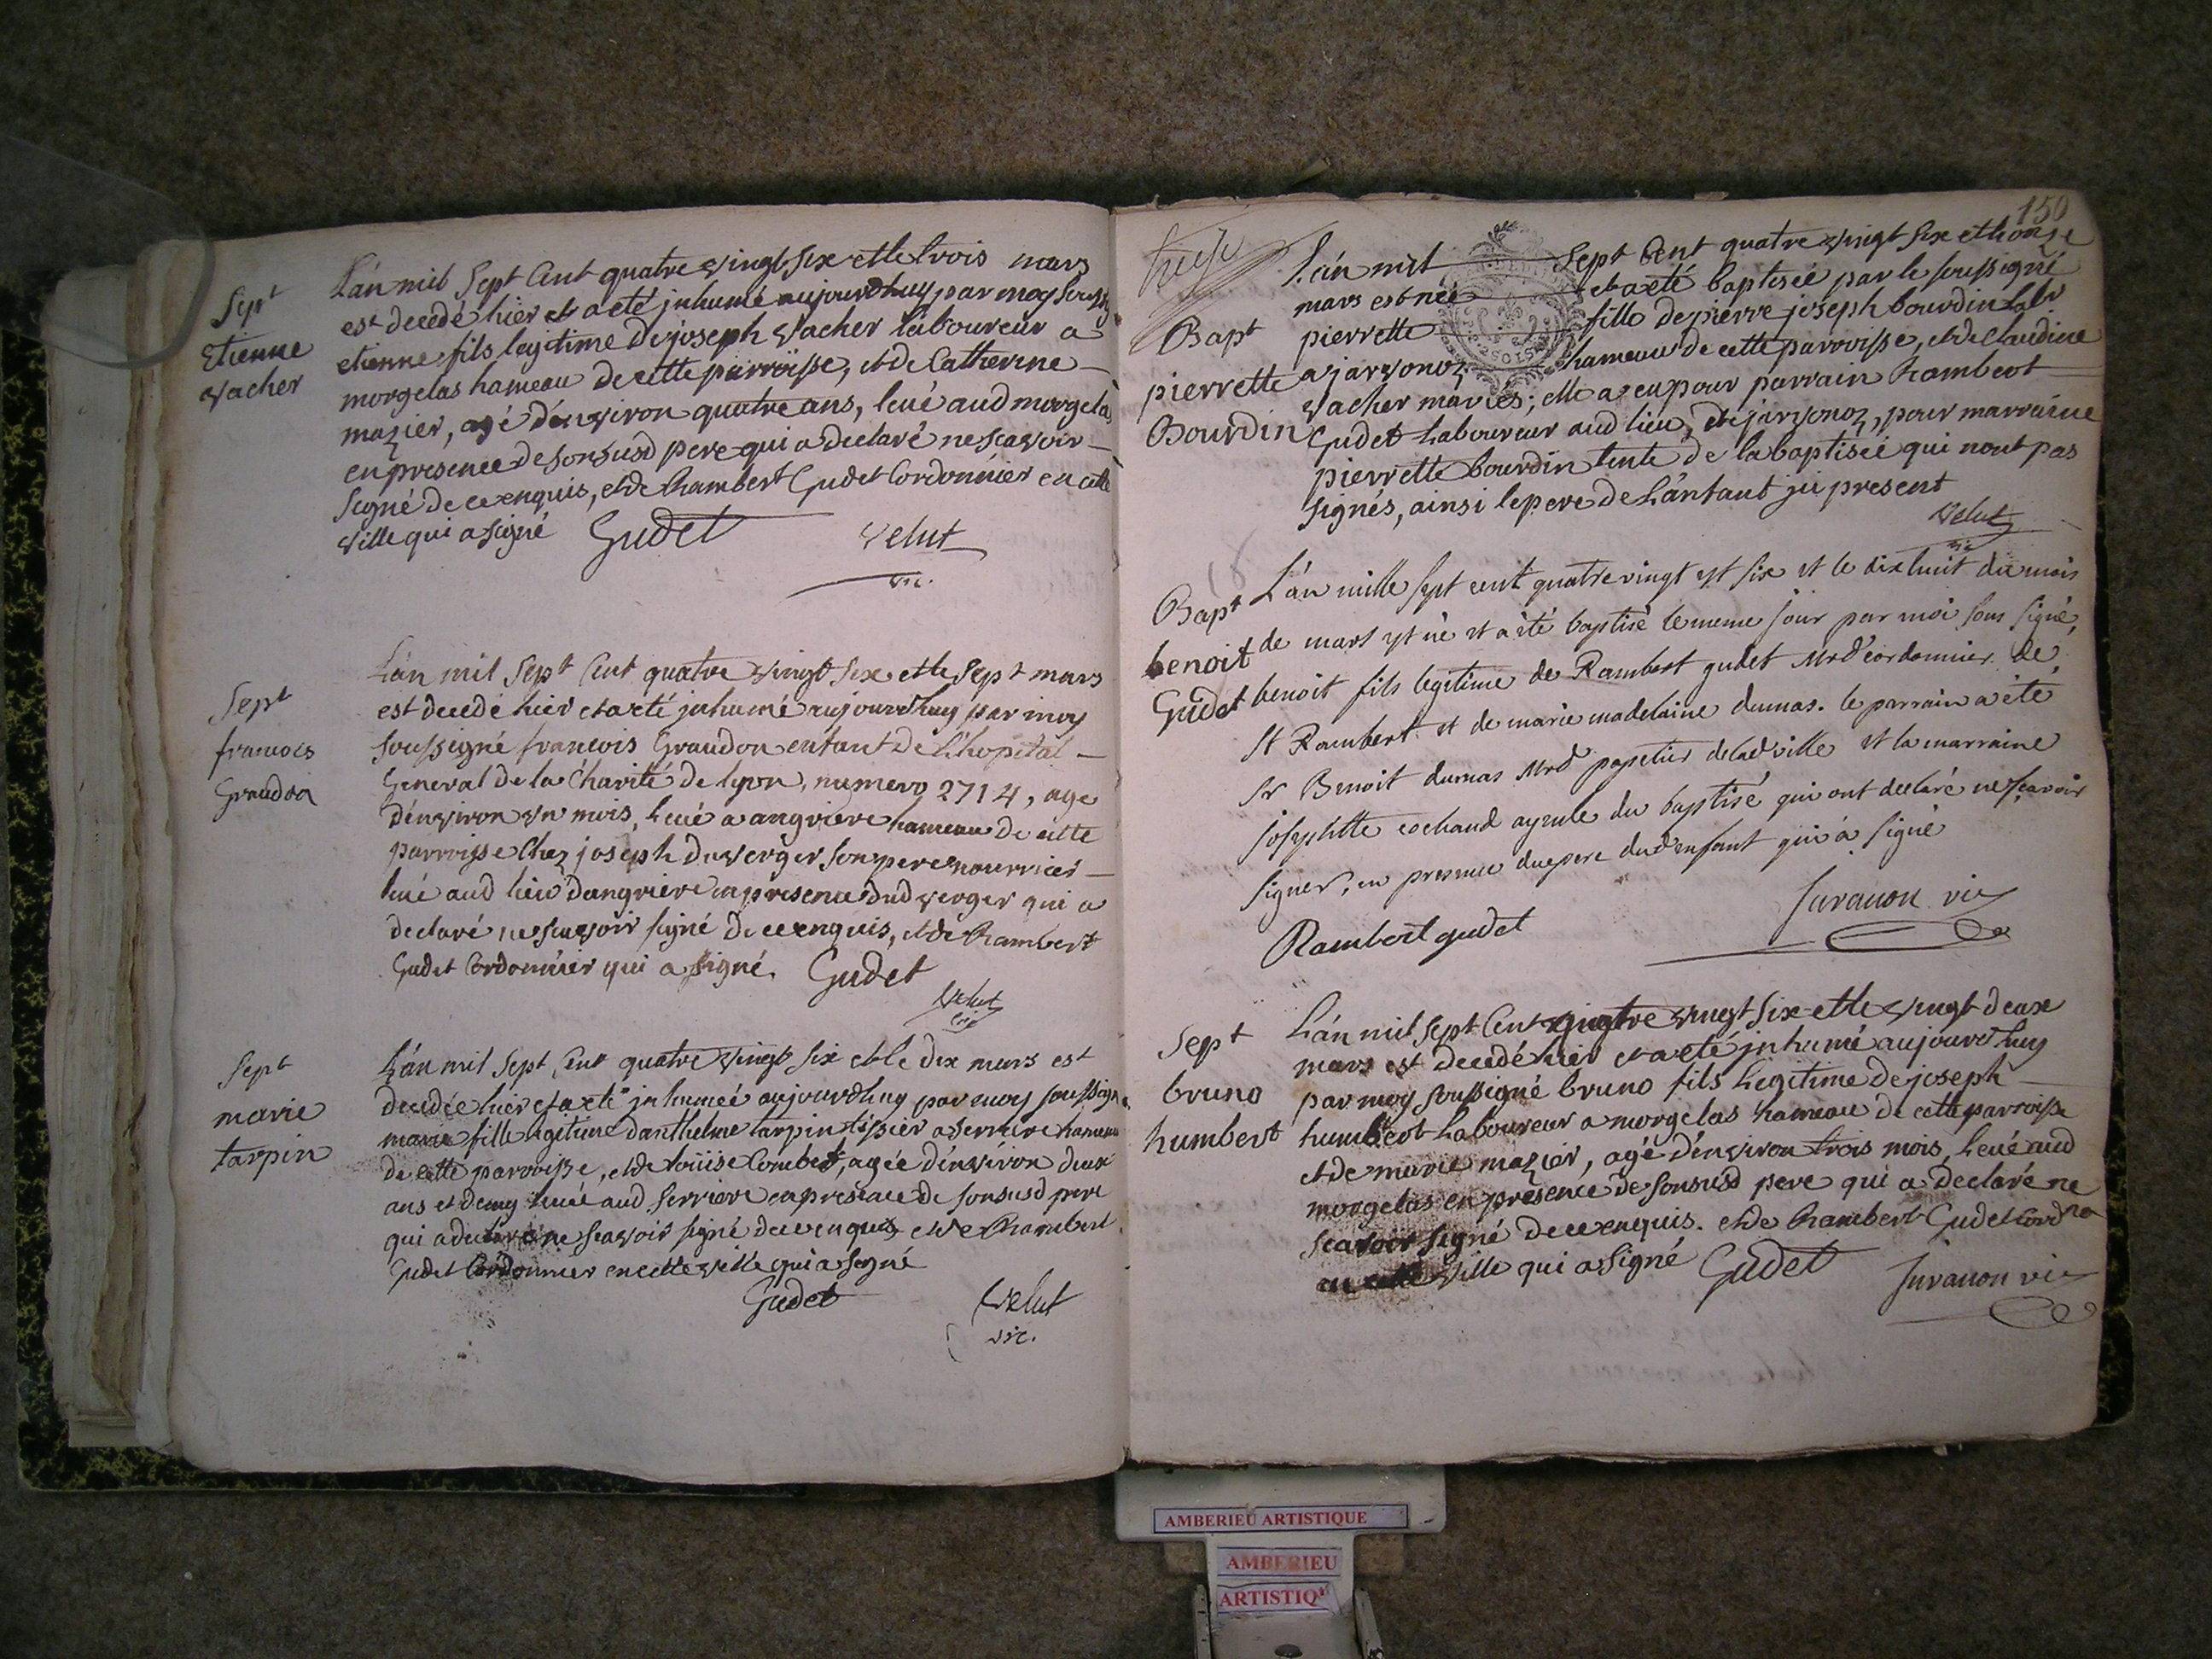 Sept
Etienne
vacher
L'an mil Sept Cent quatre vingt Six et le trois mars
est decedé hier et a eté inhumé aujourdhuy par moy souss
etienne fils legitime de joseph vacher laboureur a
morgelas hameau de cette parroisse, et de Catherine
mazier, agé d'environ quatre ans, levé aud morgelas
en presence de son susd pere qui a declaré ne scavoir
signé de ce enquis, et de Rambert Gudet Cordonnier en cette
ville qui a signé Gudet Velut
vic.
Sept
francois
Graudon
L'an mil Sept Cent quatre vingt Six et le Sept mars
est decedé hier et a eté inhumé aujourdhuy par moy
soussigné francois Graudon enfant de l'hopital
General de la Charité de lyon, numero 2714, age
d'environ un mois, levé a angriere hameau de cette
parroisse Chez joseph duverger son pere nourricier
levé aud lieu d'angriere en presence dud verger qui a
declaré ne scavoir signé de ce enquis, et de Rambert
Gudet Cordonnier qui a signé. Gudet
Velut
vic
Sept
marie
tarpin
L'an mil Sept Cent quatre vingt Six et le dix mars est
decedée hier et a eté inhumée aujourdhuy par moy soussigne
marie fille legitime d'anthelme tarpin tissier a serriere hameau
de cette parroisse, et de loüise Combet, agée d'environ deux
ans et demy levée aud serriere en presence de son susd pere
qui a declaré ne scavoir signé de ce enquis et de Rambert
Gudet Cordonnier en cette ville qui a signé
Gudet Velut
vic.
150
Bapt
pierrette
Bourdin
L'an mil Sept Cent quatre vingt Six et le onze
mars est née et a eté baptisée par le soussigné
pierrette fille de pierre joseph bourdin labr
a jarvonoz hameau de cette parroisse, et de Claudine
vacher mariés; elle a eu pour parrain Rambert
Gudet laboureur aud lieu de jarvonoz, pour marraine
pierrette bourdin tente de la baptisée qui n'ont pas
signés, ainsi le pere de l'anfant ji present
Velut
vic
18
Bapt
benoit
Gudet
L'an mille sept cent quatre vingt est six et le dix huit du mois
de mars est né et a été baptisé le meme jour par moi sous signé,
benoit fils legitime de Rambert gudet Mrd cordonnier de
St Rambert et de marie madelaine dumas. le parrain a été
sr Benoit dumas Mrd papetier de lad ville et la marraine
josephtte cochaud ayeule du baptisé qui ont declaré ne scavoir
signer, en presence du pere dud enfant qui a signé
Rambert gudet Juvanon vic
Sept
bruno
humbert
L'an mil Sept Cent quatre vingt Six et le vingt deux
mars est decedé hier et a eté inhumé aujourdhuy
par moy soussigné bruno fils legitime de joseph
humbert laboureur a morgelas hameau de cette parroisse
et de marie mazier, agé d'environ trois mois, levé aud
morgelas en presence de son susd pere qui a declaré ne
scavoir signé de ce enquis. et de Rambert Gudet cordner
en cette ville qui a signé Gudet Juvanon vic
AMBERIEU ARTISTIQUE
AMBERIEU
ARTISTIQ